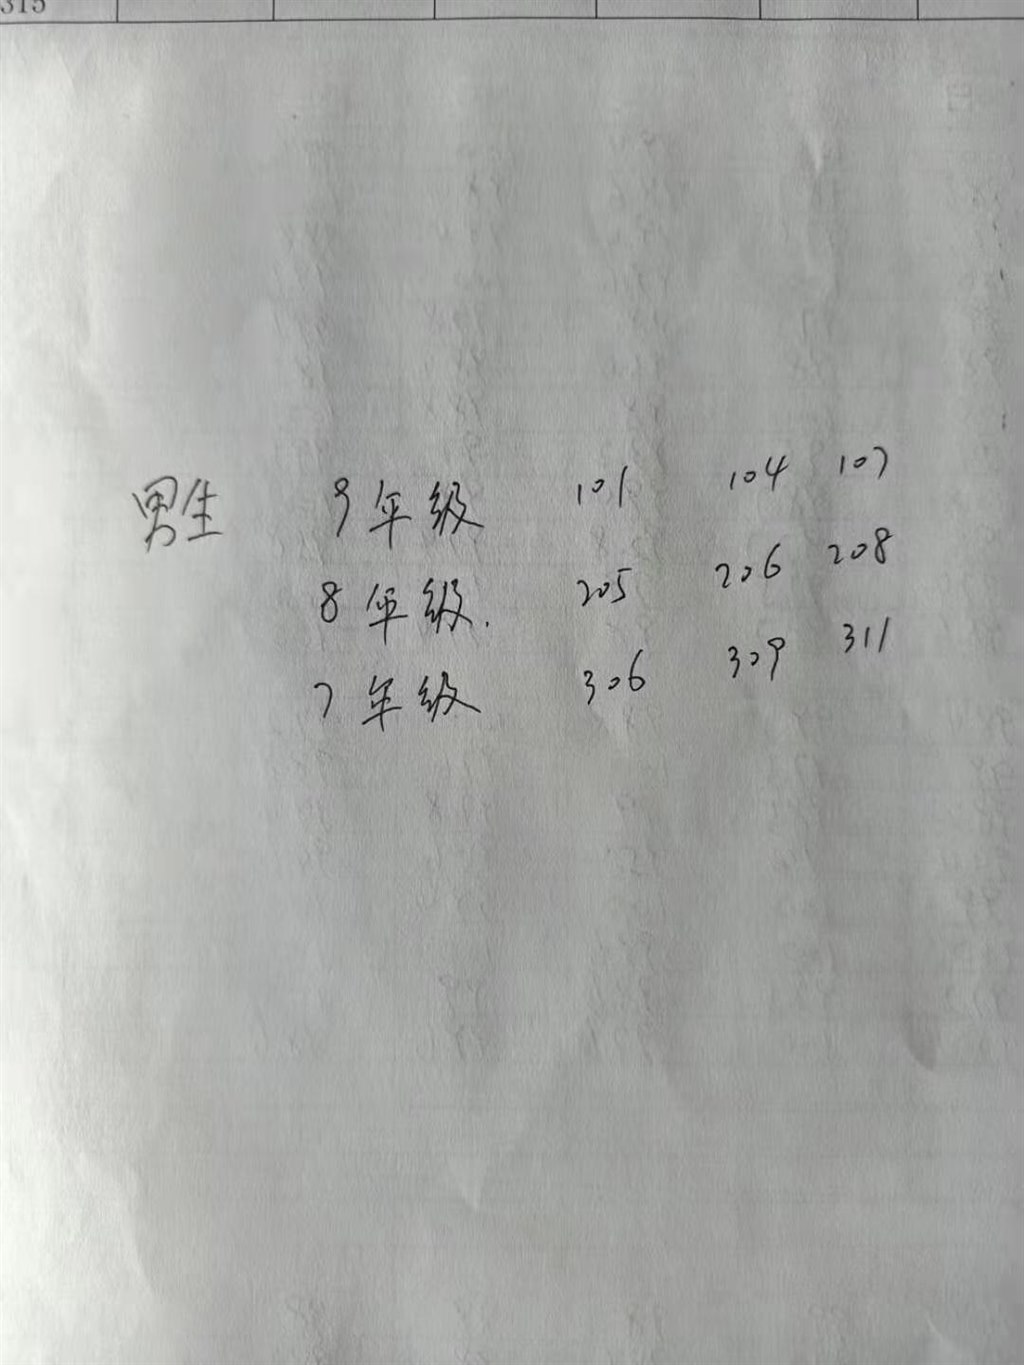 315
男生 9年级 101 104 107
8年级. 205 206 208
7年级 306 309 311